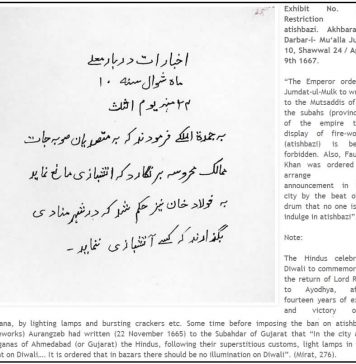 اخبارات دربار معلے
ماه شوال سنه ۱۰
۲۴ مهر يوم الثلث
به جمدة الملکے فرمودند که به متصدیان صوبه جات
ممالک محروسه بر نگارد که آتشبازی مانع نمايد
به فولاد خان نيز حکم شد که در شهر منادی
بگذارند که کسے آتشبازی ننمايد -
Exhibit No.
Restriction
atisbazi. Akhbara
Darbar-i- Mu'alla Ju
10, Shawwal 24 / A
9th 1667.
"The Emperor orde
Jumdat-ul-Mulk to wr
to the Mutsaddis of
the subahs (provinc
of the empire t
display of fire-wo
(atishbazi) is be
forbidden. Also, Fau
Khan was ordered
arrange
announcement in
city by the beat o
drum that no one is
indulge in atishbazi"
Note:
The Hindus celebr
Diwali to commemor
the return of Lord R
to Ayodhya, af
fourteen years of ex
and victory o
ana, by lighting lamps and bursting crackers etc. Some time before imposing the ban on atishb
eworks) Aurangzeb had written (22 November 1665) to the Subahdar of Gujarat that "In the city a
ganas of Ahmedabad (or Gujarat) the Hindus, following their superstitious customs, light lamps in
t on Diwali... It is ordered that in bazars there should be no illumination on Diwali". (Mirat, 276).